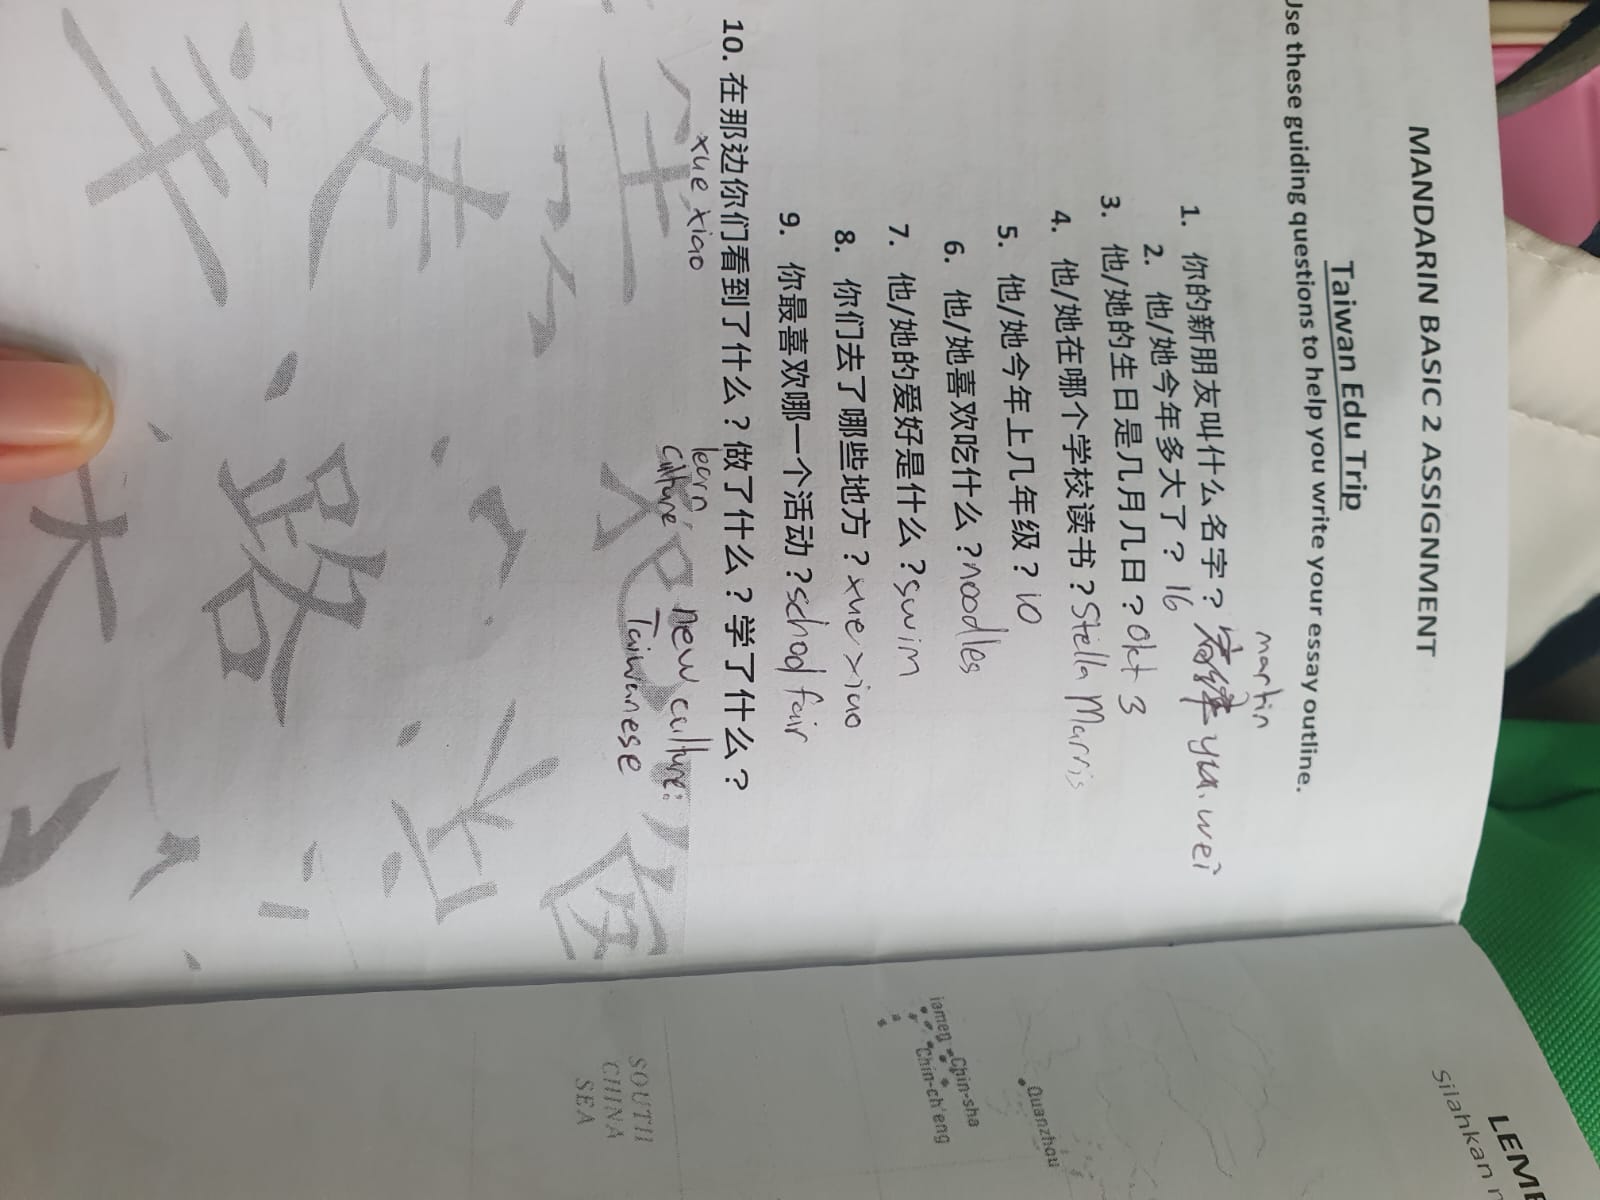 MANDARIN BASIC 2 ASSIGNMENT
Taiwan Edu Trip
Use these guiding questions to help you write your essay outline.
martin
1. 你的新朋友叫什么名字? yu.wei
2. 他/她今年多大了? 16
3. 他/她的生日是几月几日? Okt 3
4. 他/她在哪个学校读书? Stella Marris
5. 他/她今年上几年级? 10
6. 他/她喜欢吃什么? noodles
7. 他/她的爱好是什么? swim
8. 你们去了哪些地方? xue xiao
9. 你最喜欢哪一个活动? school fair
10. 在那边你们看到了什么? 做了什么? 学了什么?
xue xiao
learn culture
new culture:
Taiwanese
LEMB
Silahkan
Quanzhou
Chin-sha
Chin-ch'eng
SOUTH
CHINA
SEA